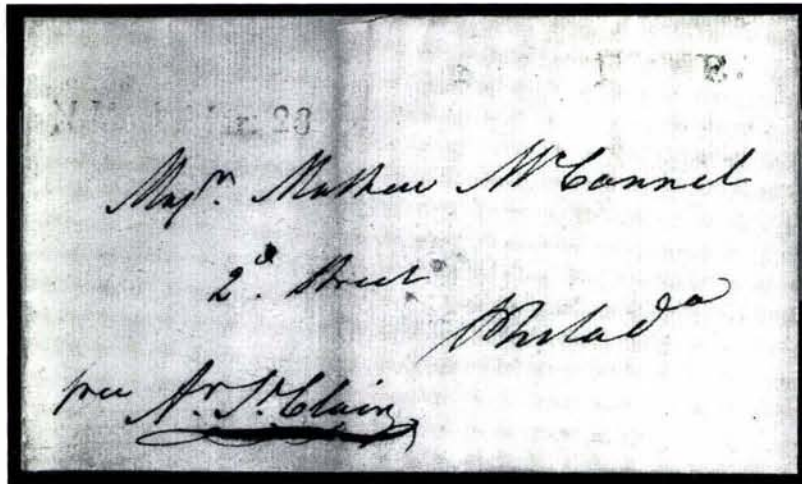 E.
28
Majr. Mathew McConnel
2d. Street
Philada
free Ar. St. Clair